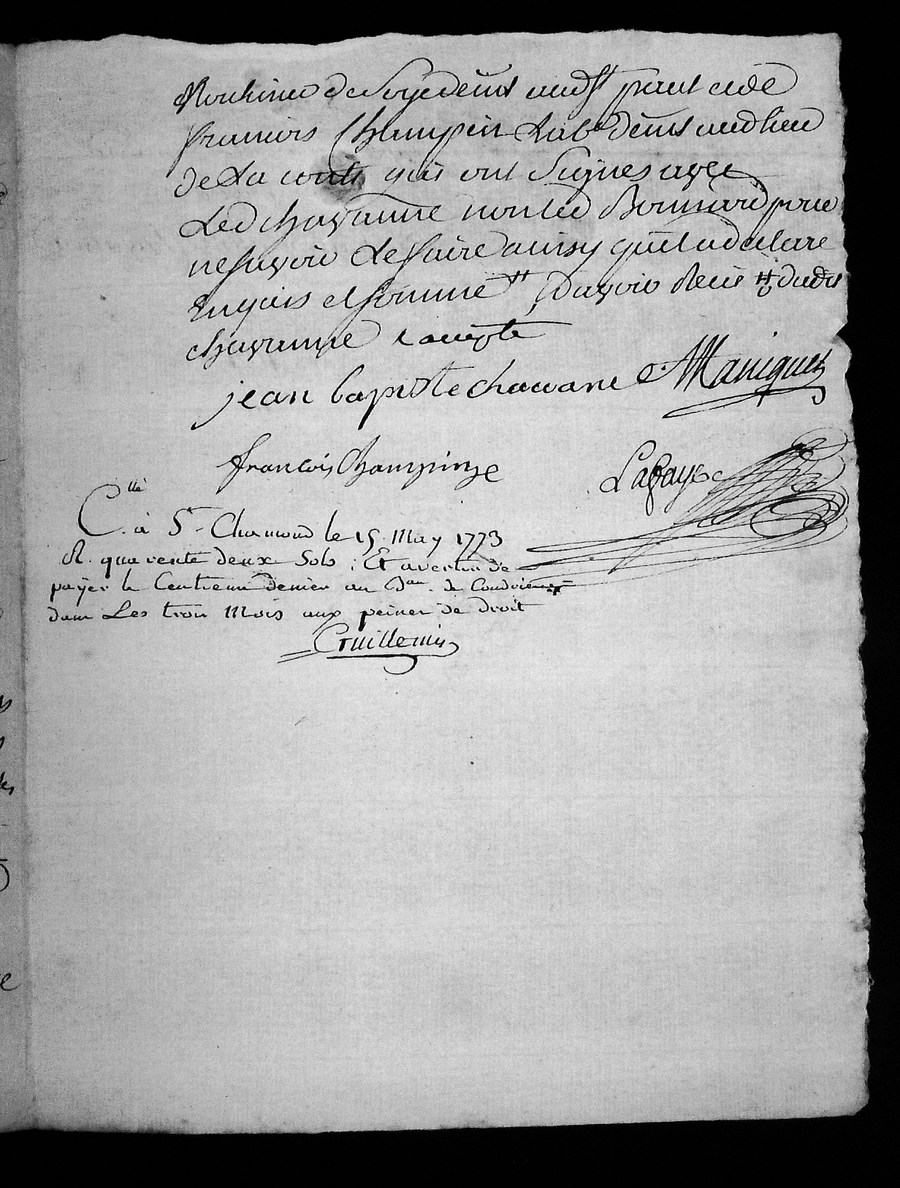 Moulinier de Soye demt aud St paul et de
francois Champin Lab demt aud lieu
de La qui ont Signés avec
Led chavanne non led Bonnard pour
ne savoir Le faire ainsy quil a declare
Enquis et sommé davoir Recu dudt
chavanne compte
jean baptiste chavane Maniquet
francois Champin
Lafaye
C.llé à St. Chamond le 15 May 1773
R. quarente deux Sols ; Et averti de
payer le Centieme denier au Bau de Condrieu
dans Les trois Mois aux peines de droit
Guillemin